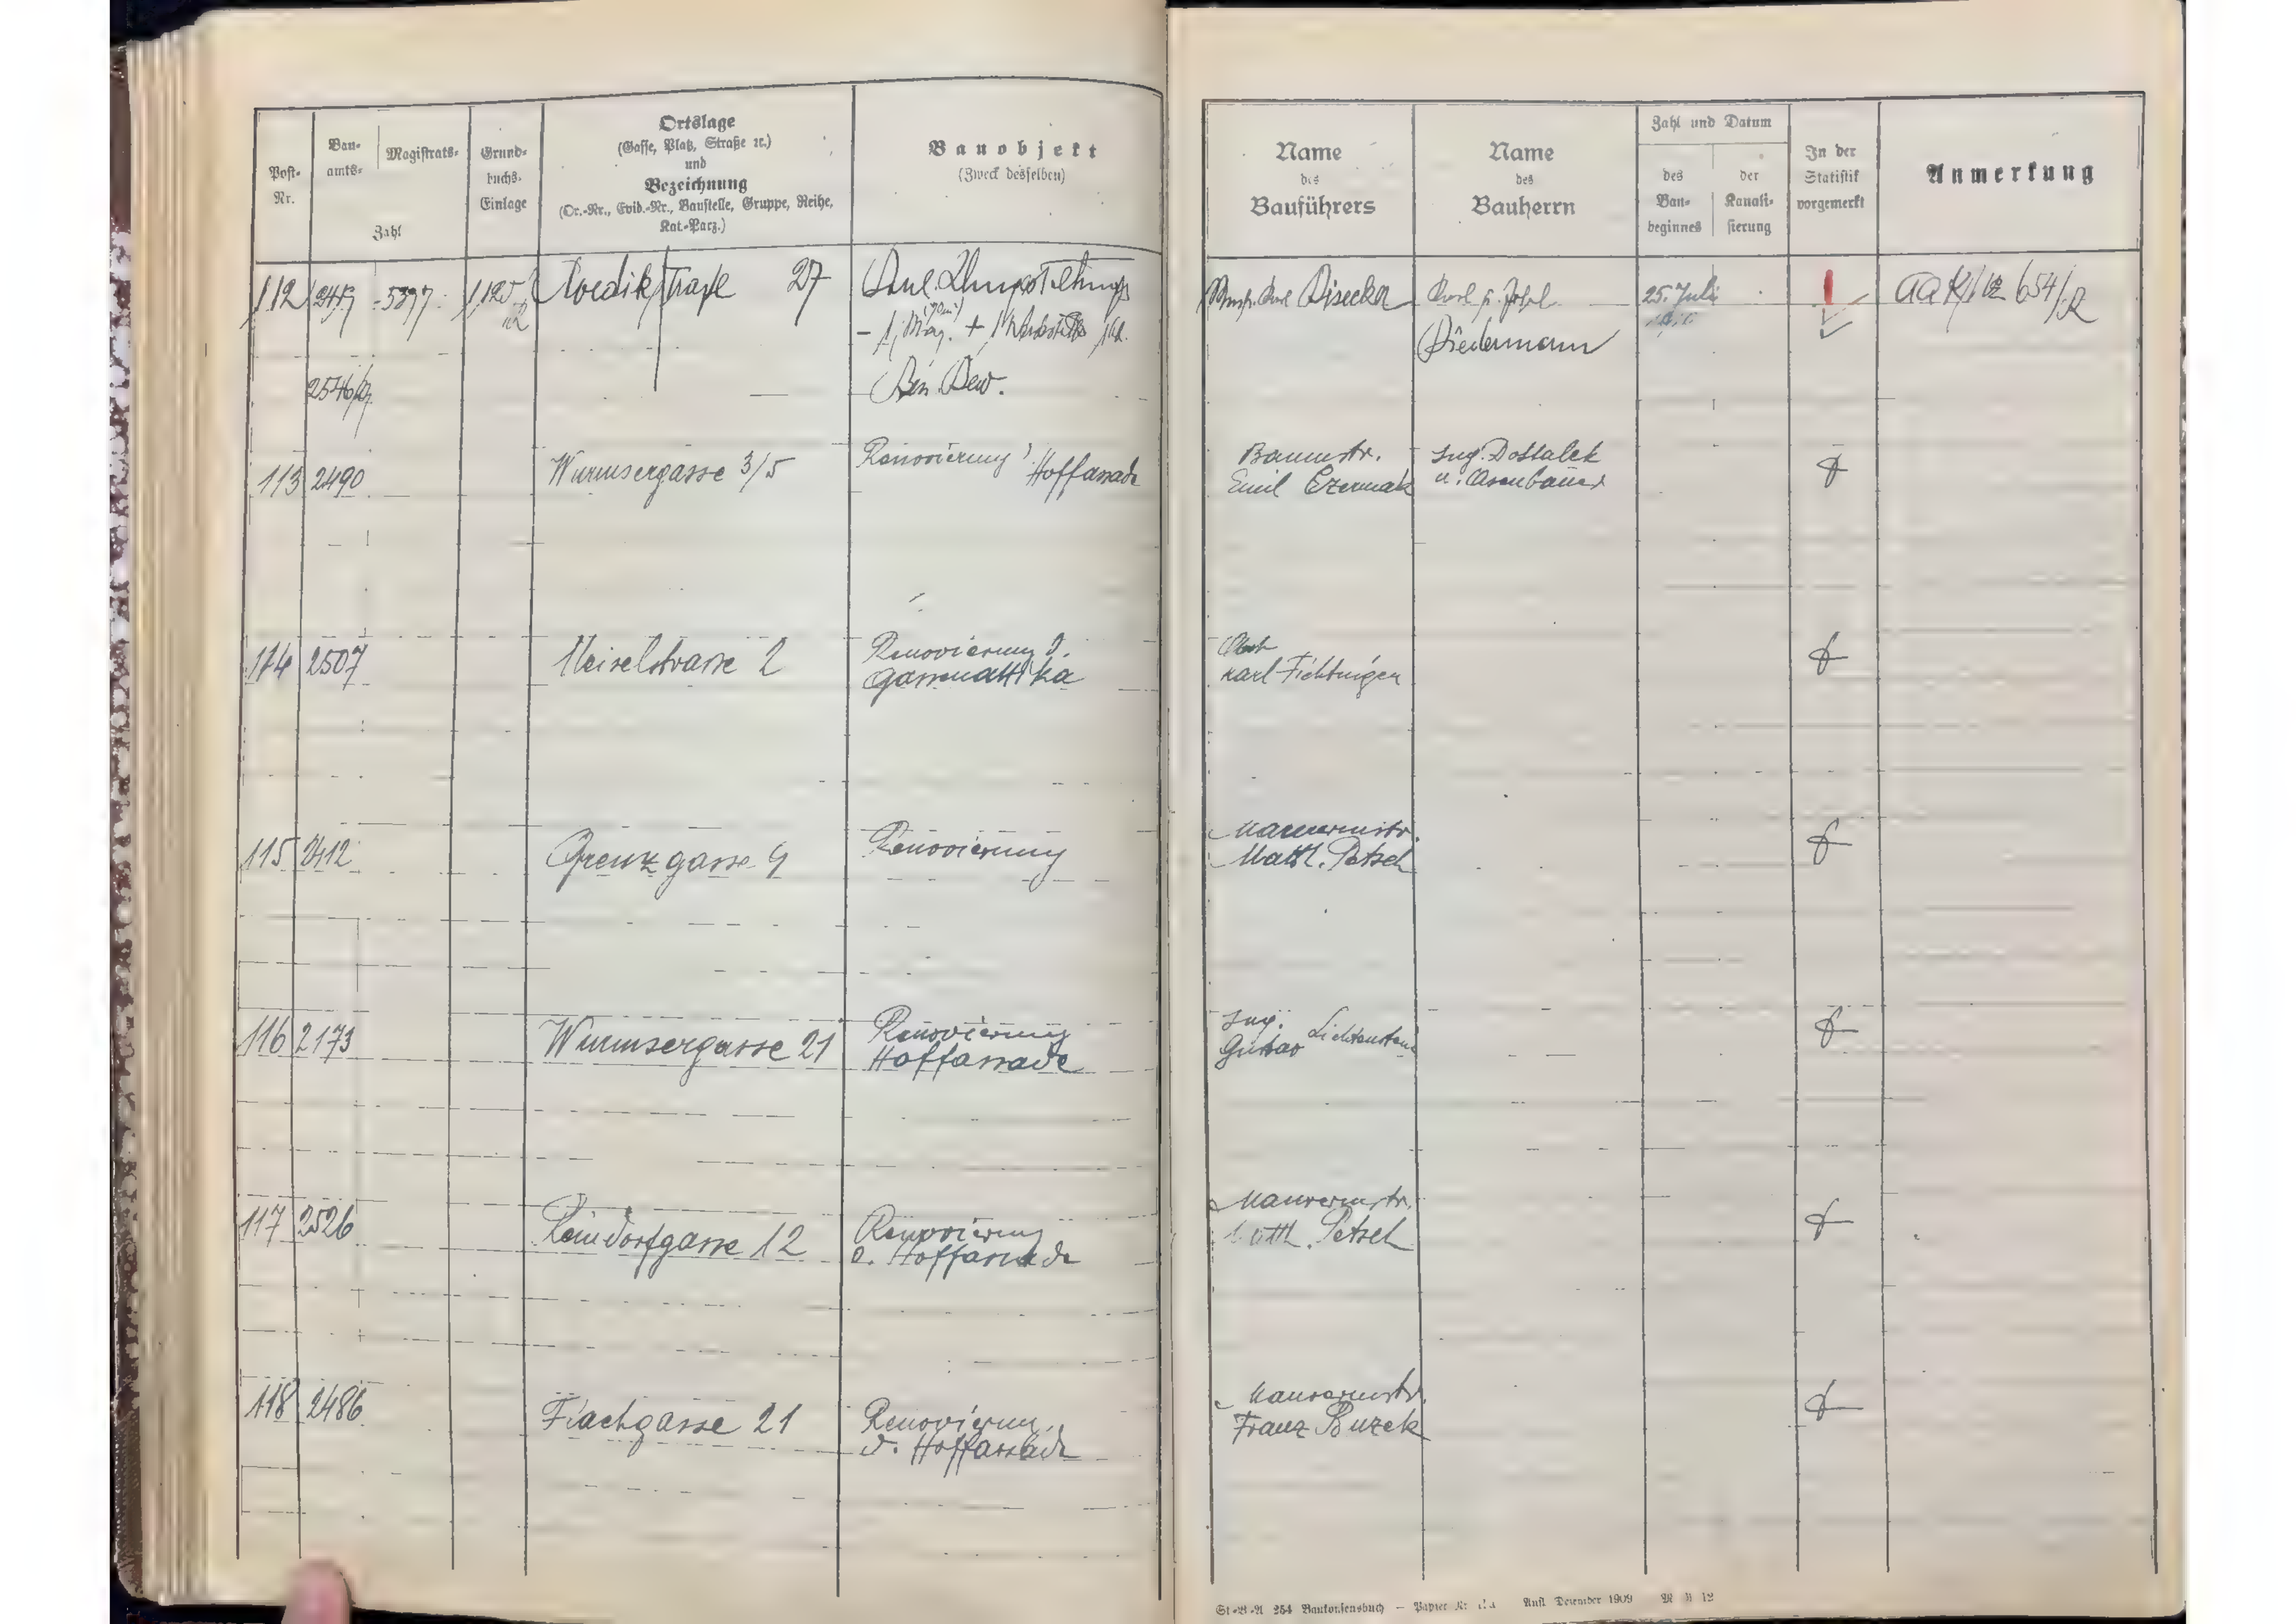 Post-
Nr.
Bau-
amts-
Magistrats-
Zahl
Grund-
buchs-
Einlage
Ortslage
(Gasse, Platz, Straße ꝛc.)
und
Bezeichnung
(Or.-Nr., Evid.-Nr., Baustelle, Gruppe, Reihe,
Kat.-Parz.)
Bauobjekt
(Zweck desselben)
Name
des
Bauführers
Name
des
Bauherrn
Zahl und Datum
des
Bau-
beginnes
der
Kanali-
sierung
In der
Statistik
vorgemerkt
Anmerkung
112 5397 27
25. Juli
Biedermann
Ben. Bew.
113 2490 Wurmsergasse 3/5 Renovierung Hoffassade
Baumstr. Ing. Dostalek
Emil Czermak u.
114 2507 Meiselstrasse 2 Renovierung d.
Gassenattika
Karl
115 2412 Grenzgasse 9 Renovierung
Maurermstr.
Matth. Petsch
116 2173 Wurmsergasse 21 Renovierung
Hoffassade
Ing.
Gustav Lichtenstein
117 2526 Reindorfgasse 12 Renovierung
d. Hoffassade
Maurermstr.
Matth. Petsch
118 2486 Flachgasse 21 Renovierung
d. Hoffassade
Maurermstr.
Franz Buzek
St.-B.-A 254 Baukonsensbuch — Papier Nr. Aufl. Dezember 1909